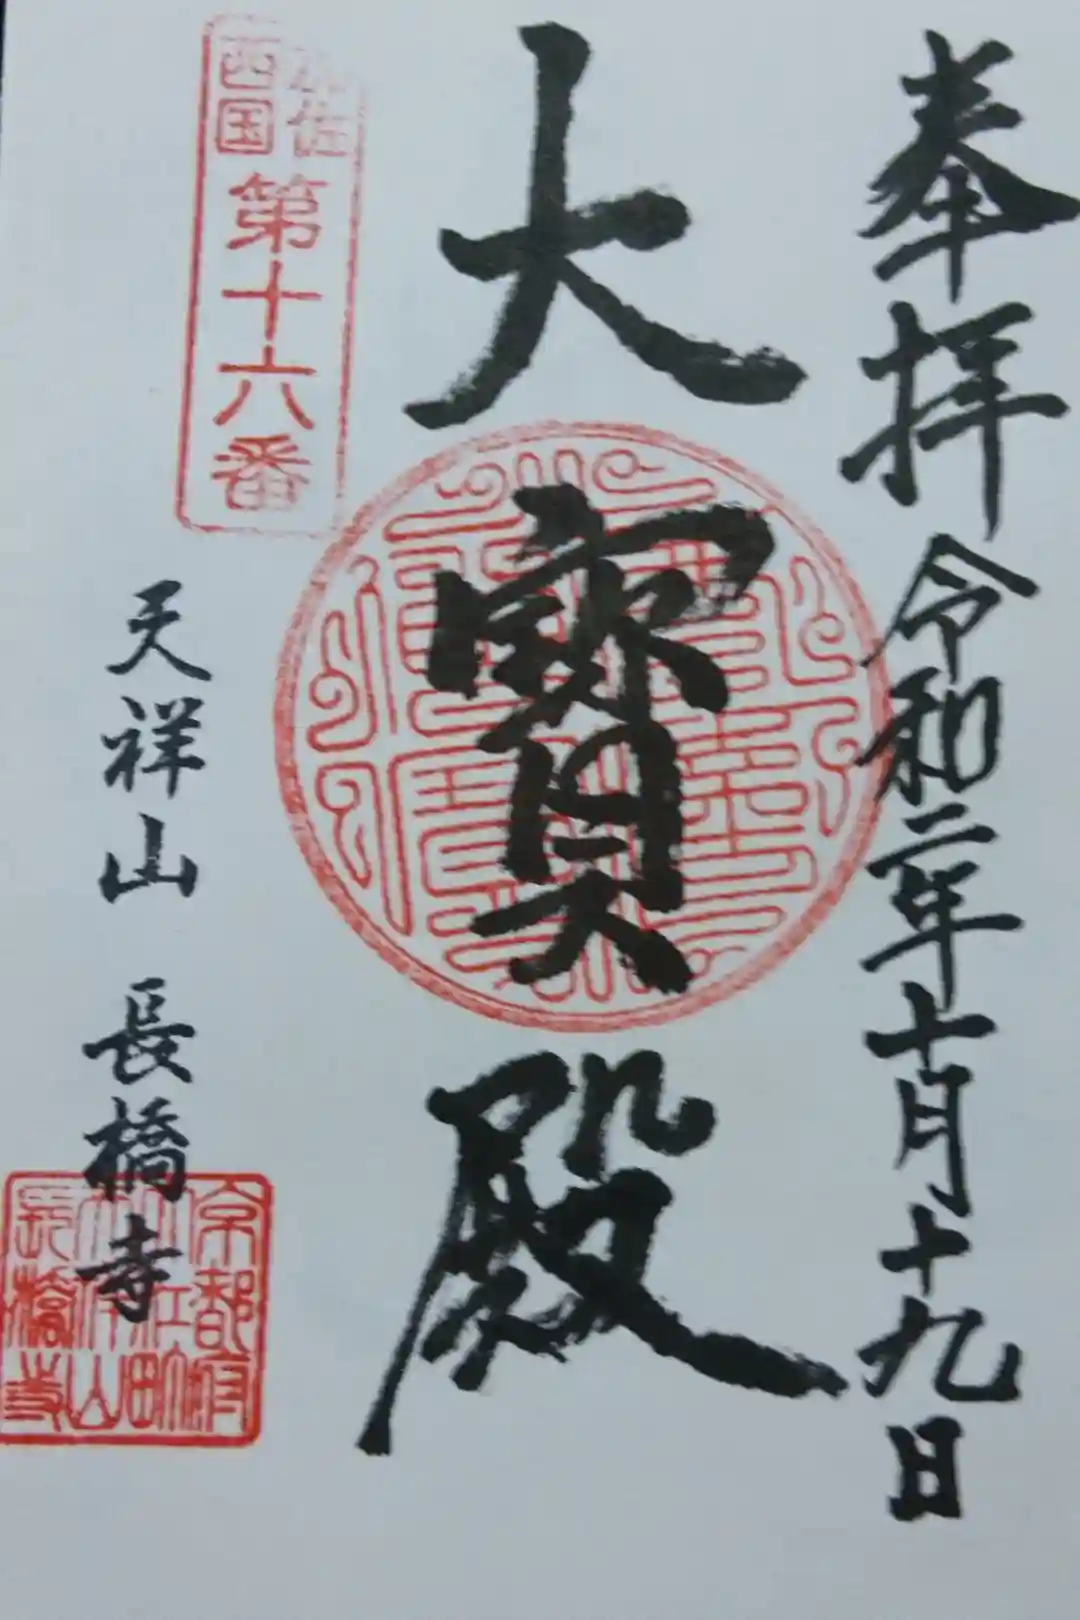 奉拝 令和二年十月十九日
大寶殿
加佐
西国
第十六番
天祥山 長橋寺
京都府
長橋寺